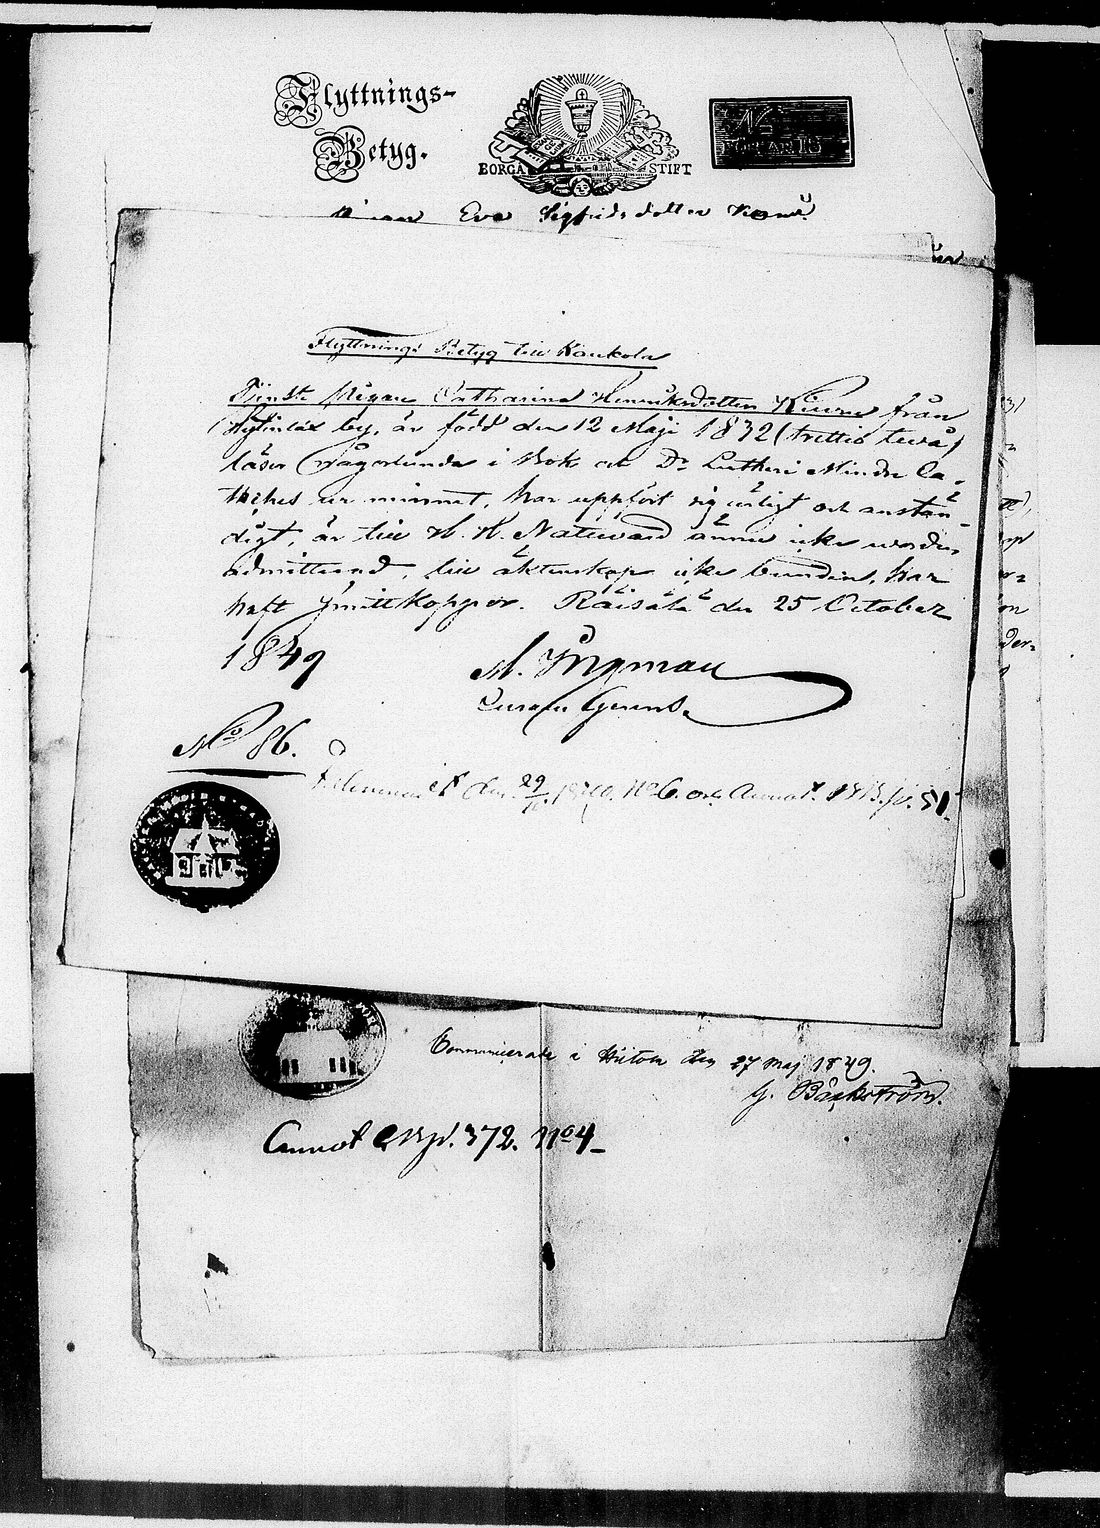 Flyttnings-
Betyg.
BORGÅ STIFT
N:
FÖR ÅR 18
Pigan Eva Sigfridsdotter
Flyttnings Betyg till Kaukola
Tjenste Pigan Catharina Henriksdotter från
by, är född den 12 Maji 1832 (trettio twå)
läser någorlunda i Bok och Dr Lutheri Mindre Ca-
theches ur minnet, har uppfört sig ärligt och anstän-
digt, är till H. H. Nattward ännu icke worden
admitterad, till äktenskap icke bunden, har
haft Smittkoppor. Räisälä den 25 October
1849
M. Ingman
No 86.
den 29/10 No 6. och Annot. p. 51.
Communicerade i Hiitola den 27 Maj 1849.
G. Bäckström.
Annot p. 372. No 4